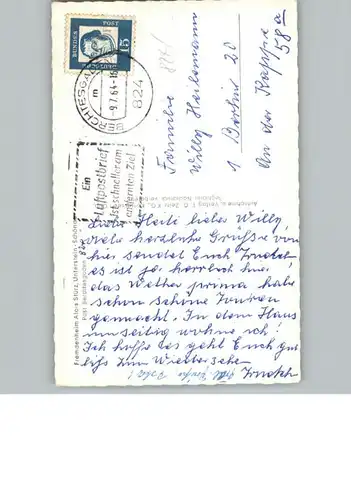 BUNDESPOST
15
BERCHTESGADEN
-9.7.64-16
824
Ein
Luftpostbrief
ist schneller am
entfernten Ziel
Familie
Willy Heilemann
1 Berlin 20
An der Kappe
58a
Fremdenheim Alois Stürz, Unterstein-Schönau
Post Berchtesgaden
Liebe Heili lieber Willy,
viele herzliche Grüße von
hier sendet Euch
es ist ja herrlich hier,
das Wetter prima habe
schon schöne Touren
gemacht. In dem Haus
umseitig wohne ich!
Ich hoffe es geht Euch gut
bis zum Wiedersehn